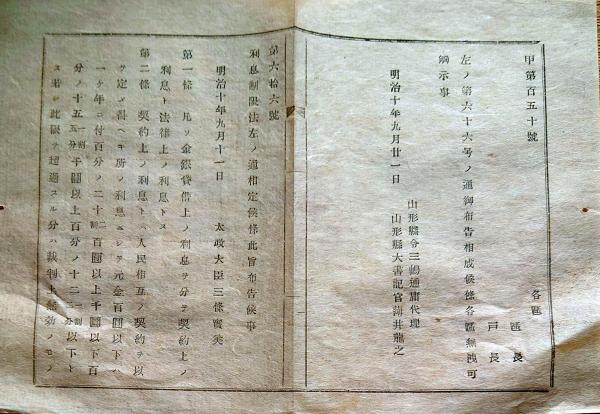 甲第百五十號
各區
區長
戸長
左ノ第六十六号ノ通御布告相成候條各區無洩可
觸示事
明治十年九月廿一日
山形縣令三島通庸代理
山形縣大書記官薄井龍之
第六拾六號
利息制限法左ノ通相定候條此旨布告候事
明治十年九月十一日
太政大臣三條實美
第一條 凡ソ金銀貸借上ノ利息ヲ分テ契約上ノ
利息ト法律上ノ利息トス
第二條 契約上ノ利息トハ人民相互ノ契約ヲ以
テ定メ得ヘキ所ノ利息ニシテ元金百圓以下ハ
一ケ年ニ付百分ノ二十二割百圓以上千圓以下百
分ノ十五一割五分千圓以上百分ノ十二一割二分以下ト
ス若シ此限ヲ超過スル分ハ裁判上無効ノモノ